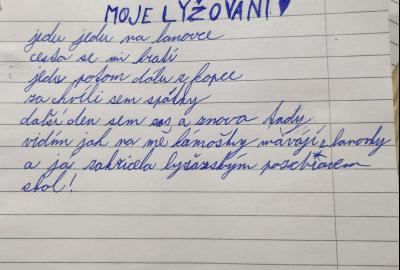 MOJE LYŽOVÁNÍ
jedu jedu na lanovce
cesta se mi krátí
jedu potom dólu z kopce
za chvíli sem spátky
další den sem zas a znova tady
vidím jak na mě kámošky mávájí z lanovky
a já zakřičela lyžařským pozdravem
skol!